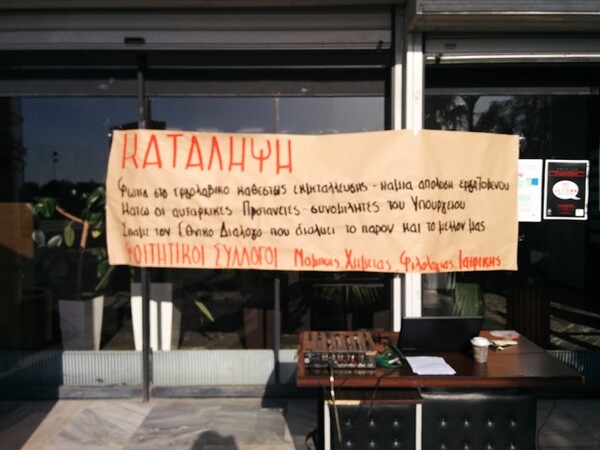 ΚΑΤΑΛΗΨΗ
Φωτιά στο εργολαβικό καθεστώς εκμετάλλευσης - καμια απόλυση εργαζομένου
Κάτω οι αυταρχικές Πρυτανείες - συνομιλητές του Υπουργείου
Σπάμε τον Εθνικό Διάλογο που διαλύει το παρόν και το μέλλον μας
ΦΟΙΤΗΤΙΚΟΙ ΣΥΛΛΟΓΟΙ Νομικής, Χημείας, Φιλολογίας, Ιατρικής